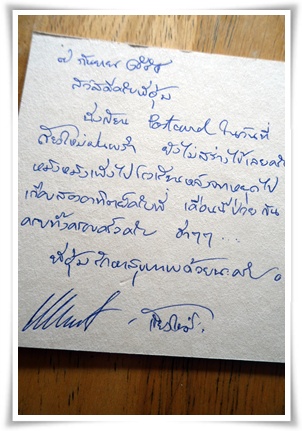 ๘ กันยายน ๒๕๕๒
สวัสดีครับพี่ตุ้ม
นั่งเขียน Postcard ในวันที่
เชียงใหม่ฝนพรำ ยังไม่สร่างไข้เลยครับ
หมิงหมิงเพิ่งไปโรงเรียนหลังจากหยุดไป
เกือบสองอาทิตย์ครับพี่ เดือนนี้ป่วยกัน
ครบทั้งครอบครัวครับ ฮ่าๆๆ ...
พี่ตุ้มรักษาสุขภาพด้วยนะครับ
- เชียงใหม่ -